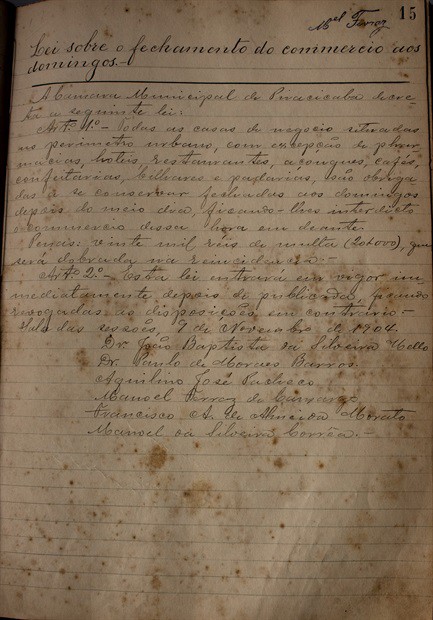 15
Mel Ferraz
Lei sobre o fechamento do commercio aos
domingos.-
A Camara Municipal de Piracicaba decre-
ta a seguinte lei:
Artº 1º- Todas as casas de negocio situadas
no perimetro urbano, com excepção de phar-
macias, hoteis, restaurantes, açougues, cafés,
confeitarias, bilhares e padarias, são obriga-
das a se conservar fechadas aos domingos
depois do meio dia, ficando-lhes interdicto
o commercio dessa hora em deante.
Penas: vinte mil réis de multa (20$000), que
será dobrada na reincidencia.-
Artº 2º- Esta lei entrará em vigor im-
mediatamente depois de publicada, ficando
revogadas as disposições em contrario.-
Sala das sessões, 7 de Novembro de 1904.
Dr. João Baptista da Silveira Mello
Dr. Paulo de Moraes Barros
Aquilino José Pacheco
Manoel Ferraz de Camargo
Francisco A. de Almeida Morato
Manoel da Silveira Corrêa.-